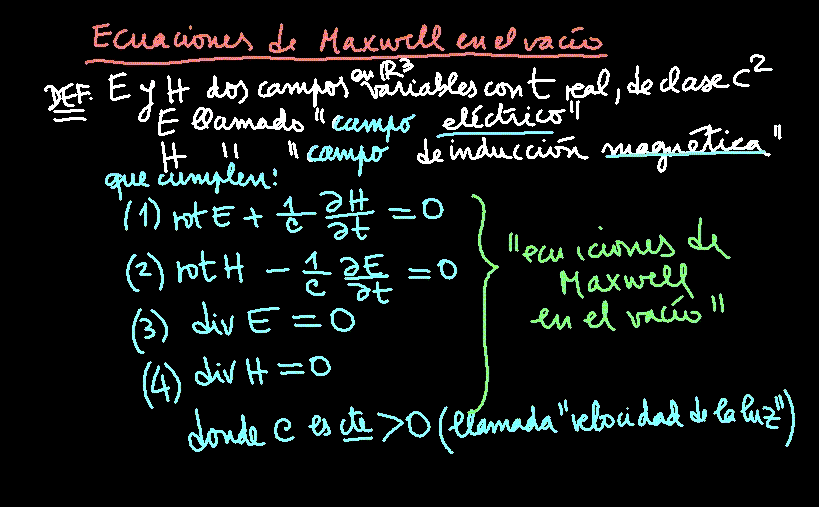 Ecuaciones de Maxwell en el vacío
DEF. E y H dos campos en ℝ³ variables con t real, de clase C²
E llamado "campo eléctrico"
H " "campo de inducción magnética"
que cumplen:
(1) rot E + 1/c ∂H/∂t = 0
(2) rot H - 1/c ∂E/∂t = 0
(3) div E = 0
(4) div H = 0
"ecuaciones de
Maxwell
en el vacío"
donde c es cte > 0 (llamada "velocidad de la luz")